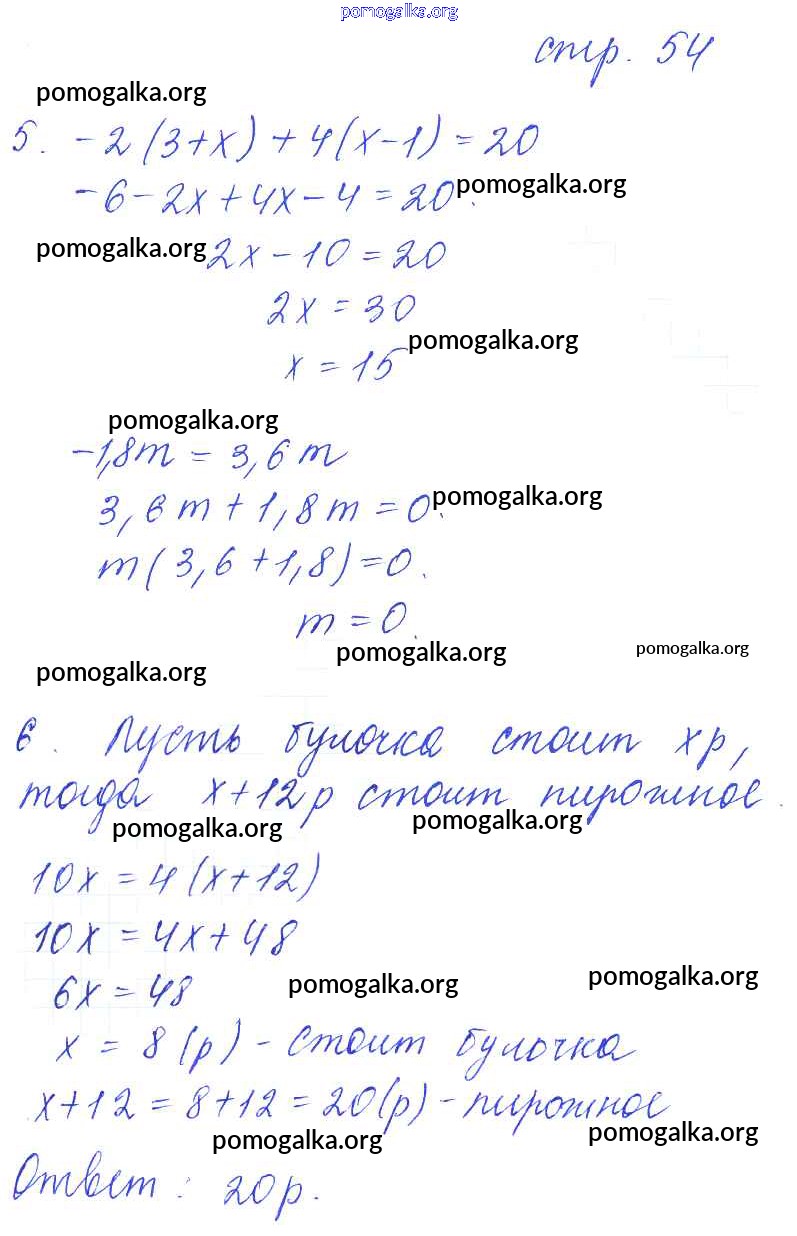 pomogalka.org
стр. 54
pomogalka.org
5. -2(3+x)+4(x-1)=20
-6-2x+4x-4=20. pomogalka.org
pomogalka.org 2x-10=20
2x=30
pomogalka.org
x=15
pomogalka.org
-1,8m=3,6m
3,6m+1,8m=0. pomogalka.org
m(3,6+1,8)=0.
m=0.
pomogalka.org pomogalka.org
pomogalka.org
6. Пусть булочка стоит xр,
тогда x+12р стоит пирожное.
pomogalka.org pomogalka.org
10x=4(x+12)
10x=4x+48
6x=48 pomogalka.org pomogalka.org
x=8(р)-стоит булочка
x+12=8+12=20(р)-пирожное
pomogalka.org pomogalka.org
Ответ: 20р.